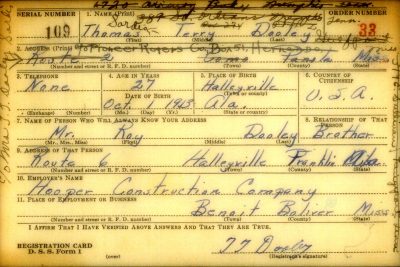 SERIAL NUMBER 1. NAME (Print) ORDER NUMBER
109 Thomas Terry Dooley 33
(First) (Middle) (Last)
2. ADDRESS (Print)
Route 2 Como Panola Miss
(Number and street or R. F. D. number) (Town) (County) (State)
3. TELEPHONE 4. AGE IN YEARS 5. PLACE OF BIRTH 6. COUNTRY OF CITIZENSHIP
None 27 Halleyville U.S.A.
DATE OF BIRTH (Town or county)
Oct. 1, 1913 Ala.
(Mo.) (Day) (Yr.) (State or country)
7. NAME OF PERSON WHO WILL ALWAYS KNOW YOUR ADDRESS 8. RELATIONSHIP OF THAT PERSON
Mr. Roy Dooley Brother
(Mr., Mrs., Miss) (First) (Middle) (Last)
9. ADDRESS OF THAT PERSON
Route 6 Halleyville Franklin
(Number and street or R. F. D. number) (Town) (County) (State)
10. EMPLOYER'S NAME
Hooper Construction Company
11. PLACE OF EMPLOYMENT OR BUSINESS
Benoit Boliver Miss
(Number and street or R. F. D. number) (Town) (County) (State)
I AFFIRM THAT I HAVE VERIFIED ABOVE ANSWERS AND THAT THEY ARE TRUE.
REGISTRATION CARD
D. S. S. Form 1 TT Dooley
(over) (Registrant's signature)